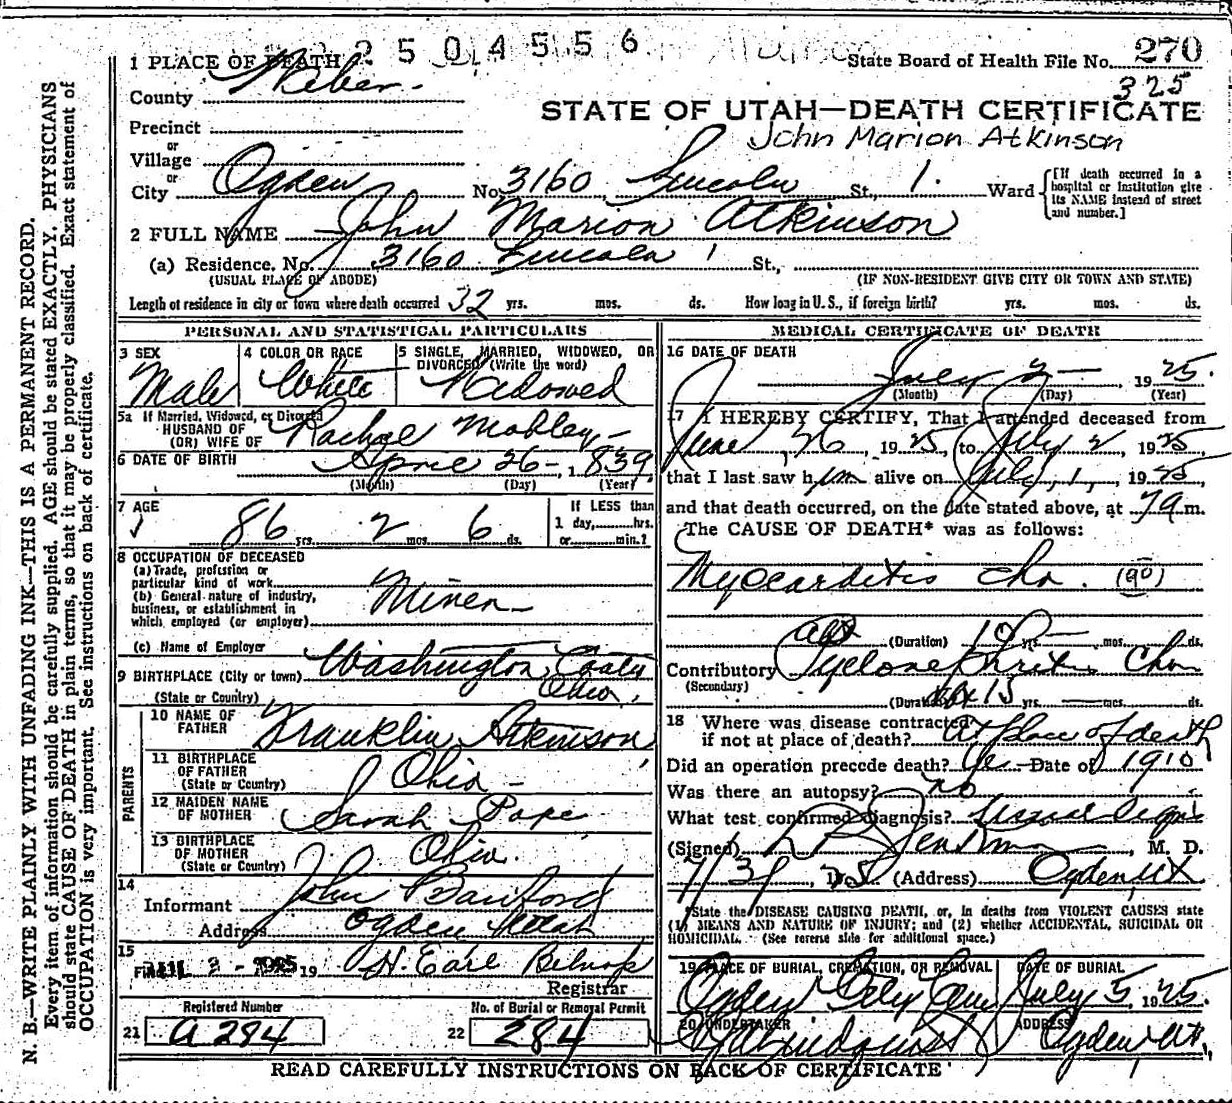 2504556
1 PLACE OF DEATH
State Board of Health File No. 270
325
County Weber
STATE OF UTAH—DEATH CERTIFICATE
Precinct
John Marion Atkinson
or
Village
or
City Ogden No. 3160 Lincoln St., 1. Ward
[If death occurred in a hospital or institution give its NAME instead of street and number.]
2 FULL NAME John Marion Atkinson
(a) Residence. No. 3160 Lincoln St.,
(USUAL PLACE OF ABODE) (IF NON-RESIDENT GIVE CITY OR TOWN AND STATE)
Length of residence in city or town where death occurred 32 yrs. mos. ds. How long in U. S., if foreign birth? yrs. mos. ds.
PERSONAL AND STATISTICAL PARTICULARS
3 SEX
Male
4 COLOR OR RACE
White
5 SINGLE, MARRIED, WIDOWED, OR
DIVORCED (Write the word)
Widowed
5a If Married, Widowed, or Divorced
HUSBAND OF
(OR) WIFE OF Rachel Mobley
6 DATE OF BIRTH April 26 — 1839
(Month) (Day) (Year)
7 AGE
86 yrs. 2 mos. 6 ds.
If LESS than
1 day, hrs.
or min.?
8 OCCUPATION OF DECEASED
(a) Trade, profession or
particular kind of work
(b) General nature of industry,
business, or establishment in
which employed (or employer)
Miner
(c) Name of Employer
9 BIRTHPLACE (City or town) Washington
(State or Country) Ohio
PARENTS
10 NAME OF
FATHER Franklin Atkinson
11 BIRTHPLACE
OF FATHER
(State or Country) Ohio
12 MAIDEN NAME
OF MOTHER Sarah Pope
13 BIRTHPLACE
OF MOTHER
(State or Country) Ohio
14
Informant John
Address Ogden Utah
15
Filed JUL 3 - 1925 19 H. Earl
Registrar
Registered Number
21 A 284
No. of Burial or Removal Permit
22 284
MEDICAL CERTIFICATE OF DEATH
16 DATE OF DEATH
July 2 — 1925.
(Month) (Day) (Year)
17 I HEREBY CERTIFY, That I attended deceased from
June, 26, 1925, to July 2, 1925
that I last saw him alive on July, 1, 1925
and that death occurred, on the date stated above, at 7 a m.
The CAUSE OF DEATH* was as follows:
Myocarditis Chr. (90)
(Duration) 10 yrs. — mos. ds.
Contributory Chr
(Secondary)
(Duration) 15 yrs. — mos. ds.
18 Where was disease contracted
if not at place of death? At place of death
Did an operation precede death? Yes — Date of 1910
Was there an autopsy? no
What test confirmed diagnosis?
(Signed) , M. D.
7/3/, 1925 (Address) Ogden, Ut
*State the DISEASE CAUSING DEATH, or, in deaths from VIOLENT CAUSES state
(1) MEANS AND NATURE OF INJURY; and (2) whether ACCIDENTAL, SUICIDAL OR
HOMICIDAL. (See reverse side for additional space.)
19 PLACE OF BURIAL, CREMATION, OR REMOVAL
Ogden City Cem
DATE OF BURIAL
July 5, 1925.
20 UNDERTAKER
Lindquist
ADDRESS
Ogden Ut.
READ CAREFULLY INSTRUCTIONS ON BACK OF CERTIFICATE
N. B.—WRITE PLAINLY WITH UNFADING INK—THIS IS A PERMANENT RECORD.
Every item of information should be carefully supplied. AGE should be stated EXACTLY. PHYSICIANS
should state CAUSE OF DEATH in plain terms, so that it may be properly classified. Exact statement of
OCCUPATION is very important. See instructions on back of certificate.